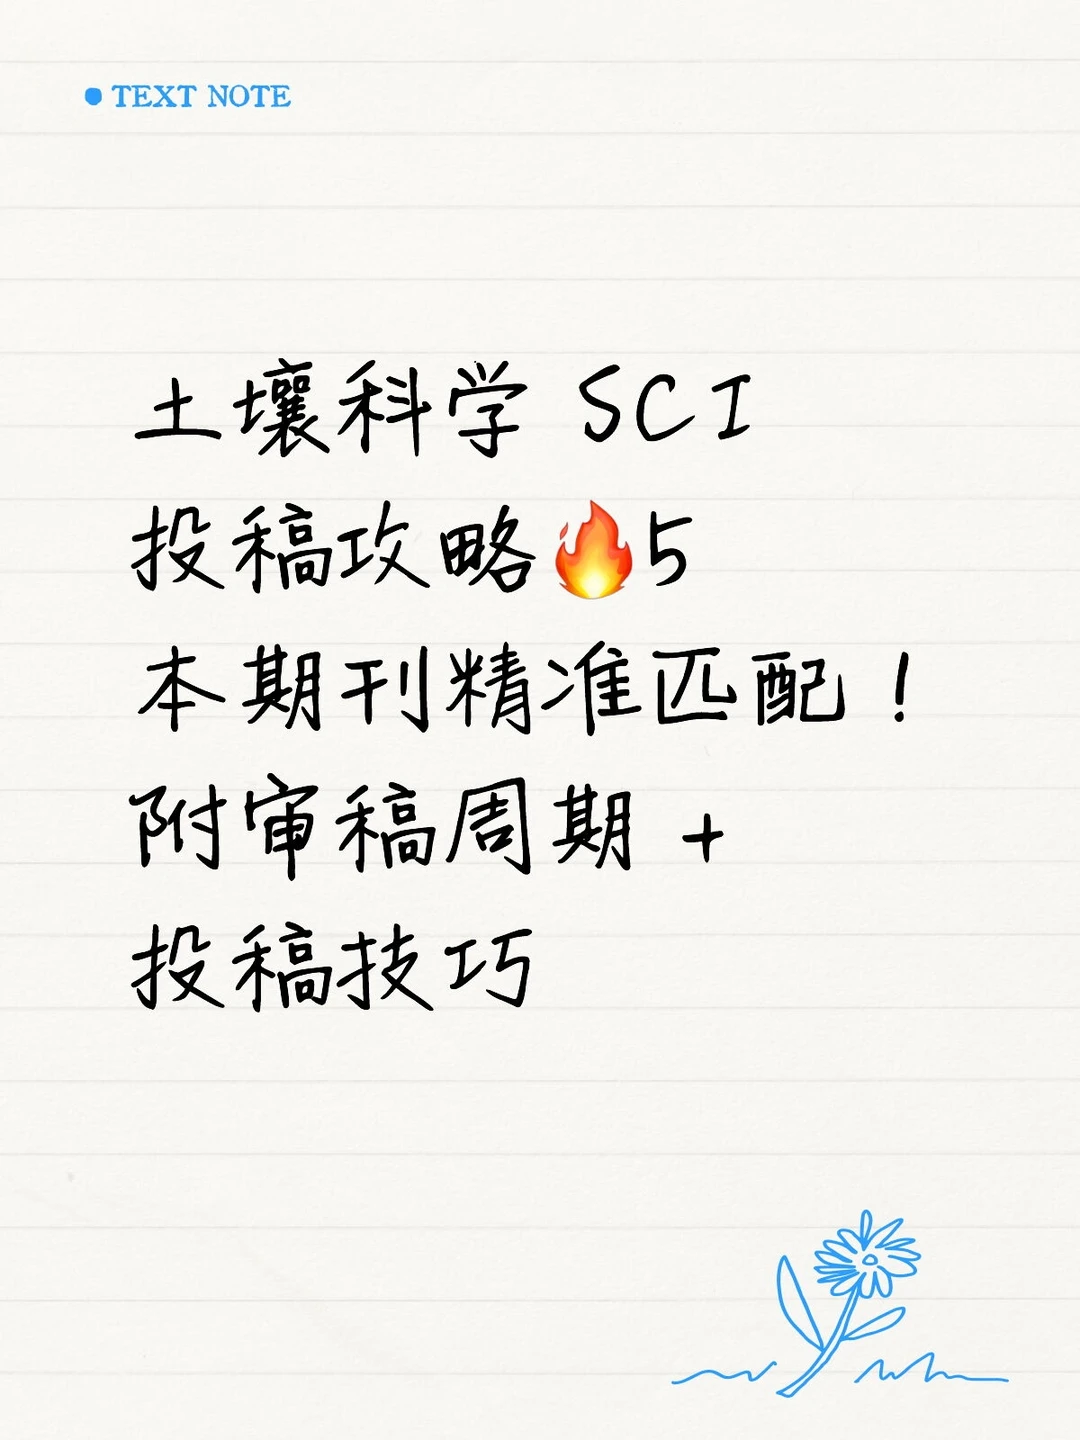 TEXT NOTE
土壤科学 SCI
投稿攻略🔥5
本期刊精准匹配！
附审稿周期 +
投稿技巧